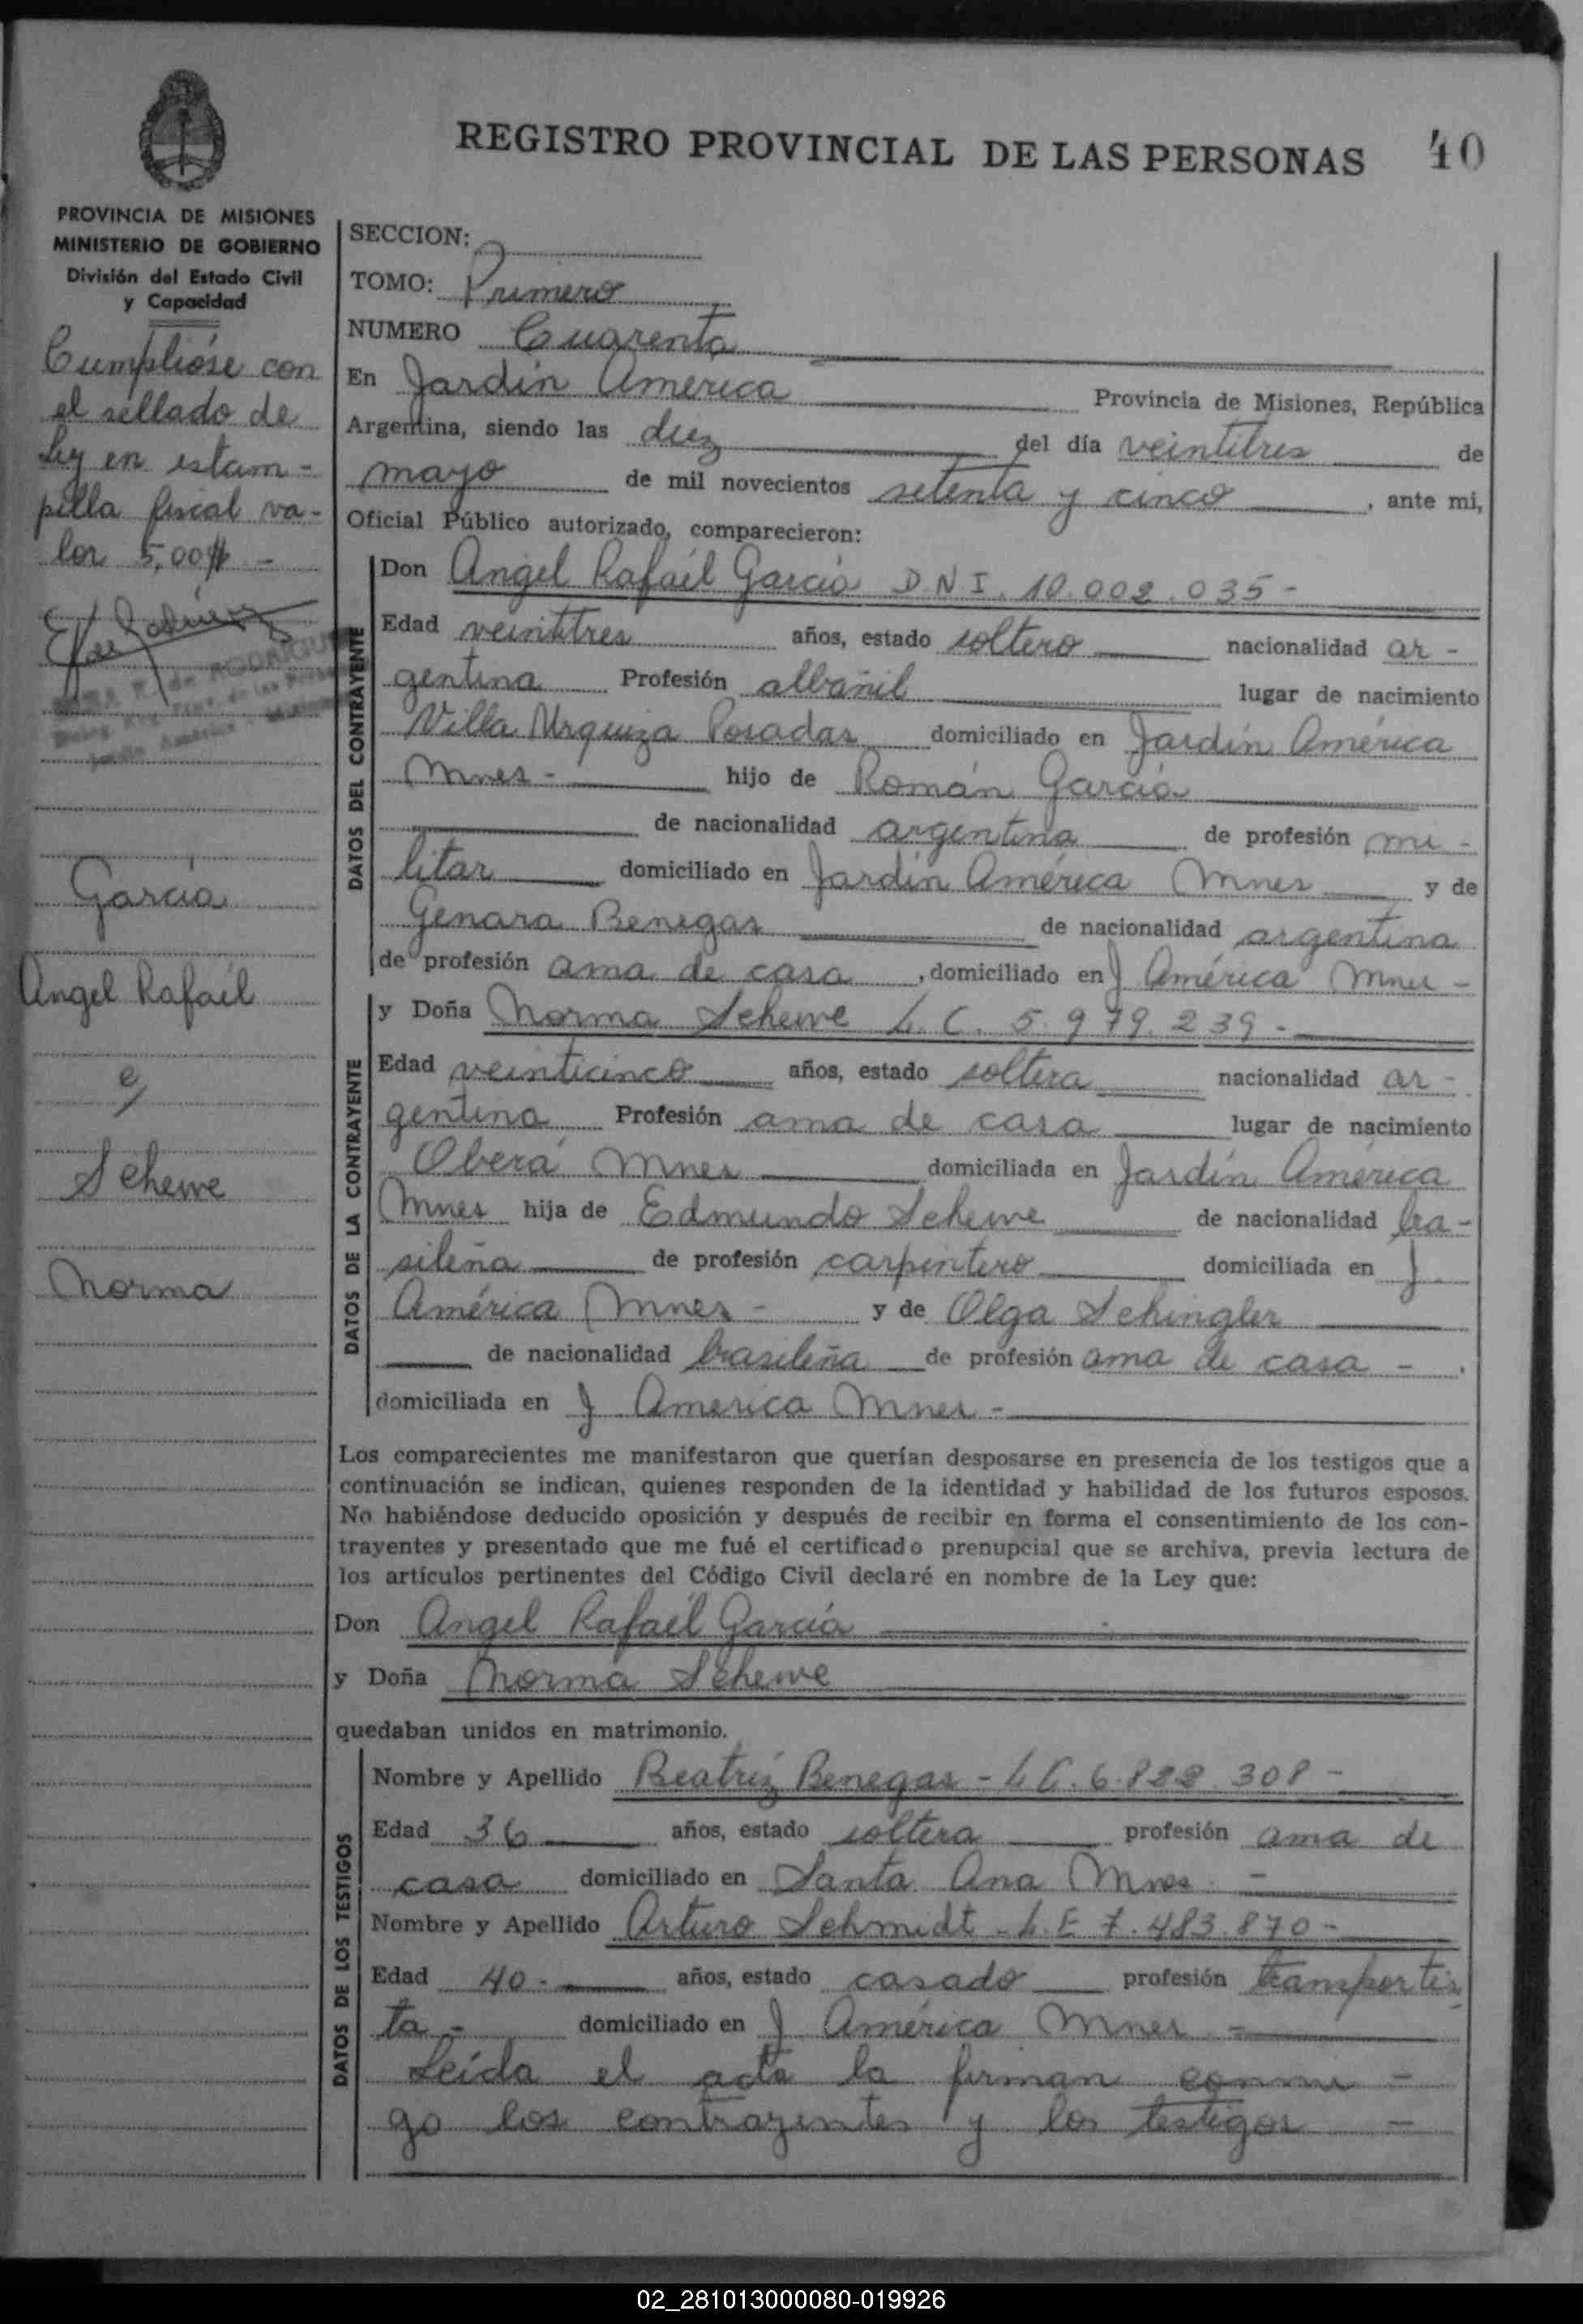 REGISTRO PROVINCIAL DE LAS PERSONAS 40
PROVINCIA DE MISIONES
MINISTERIO DE GOBIERNO
División del Estado Civil
y Capacidad
Cumplióse con
el sellado de
Ley en estam-
pilla fiscal va-
lor 5,00 $ -
García
Angel Rafaél
e/
Schewe
Norma
SECCION:
TOMO: Primero
NUMERO Cuarenta
En Jardín América Provincia de Misiones, República
Argentina, siendo las diez del día veintitres de
mayo de mil novecientos setenta y cinco, ante mi,
Oficial Público autorizado, comparecieron:
DATOS DEL CONTRAYENTE
Don Angel Rafaél García D.N.I. 10.002.035-
Edad veintitres años, estado soltero nacionalidad ar-
gentina Profesión albañil lugar de nacimiento
Villa Urquiza Posadas domiciliado en Jardín América
Mnes- hijo de Román García
de nacionalidad argentina de profesión mi-
litar domiciliado en Jardín América Mnes y de
Genara Benegas de nacionalidad argentina
de profesión ama de casa, domiciliado en J América Mnes-
DATOS DE LA CONTRAYENTE
y Doña Norma Schewe L.C. 5.979.239-
Edad veinticinco años, estado soltera nacionalidad ar-
gentina Profesión ama de casa lugar de nacimiento
Oberá Mnes domiciliada en Jardín América
Mnes hija de Edmundo Schewe de nacionalidad bra-
sileña de profesión carpintero domiciliada en J
América Mnes- y de Olga Schingler
de nacionalidad brasileña de profesión ama de casa -.
domiciliada en J America Mnes-
Los comparecientes me manifestaron que querían desposarse en presencia de los testigos que a
continuación se indican, quienes responden de la identidad y habilidad de los futuros esposos.
No habiéndose deducido oposición y después de recibir en forma el consentimiento de los con-
trayentes y presentado que me fué el certificado prenupcial que se archiva, previa lectura de
los artículos pertinentes del Código Civil declaré en nombre de la Ley que:
Don Angel Rafaél García
y Doña Norma Schewe
quedaban unidos en matrimonio.
DATOS DE LOS TESTIGOS
Nombre y Apellido Beatríz Benegas - L.C. 6.822.308-
Edad 36 años, estado soltera profesión ama de
casa domiciliado en Santa Ana Mnes -
Nombre y Apellido Arturo Schmidt - L.E 7.483.870-
Edad 40- años, estado casado profesión transportis
ta- domiciliado en J América Mnes -
Leída el acta la firman conmi-
go los contrayentes y los testigos -
02_281013000080-019926